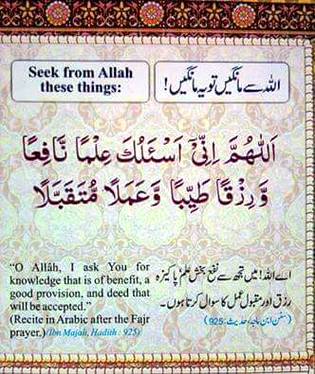 Seek from Allah
these things:
اللہ سے مانگیں تو یہ مانگیں!
اَللّٰهُمَّ اِنِّىْٓ اَسْئَلُكَ عِلْمًا نَّافِعًا
وَّرِزْقًا طَيِّبًا وَّعَمَلًا مُّتَقَبَّلًا
"O Allâh, I ask You for
knowledge that is of benefit, a
good provision, and deed that
will be accepted."
(Recite in Arabic after the Fajr
prayer.)(Ibn Majah, Hadith : 925)
اے اللہ! میں تجھ سے نفع بخش علم، پاکیزہ
رزق اور مقبول عمل کا سوال کرتا ہوں۔
(سنن ابن ماجہ، حدیث: 925)